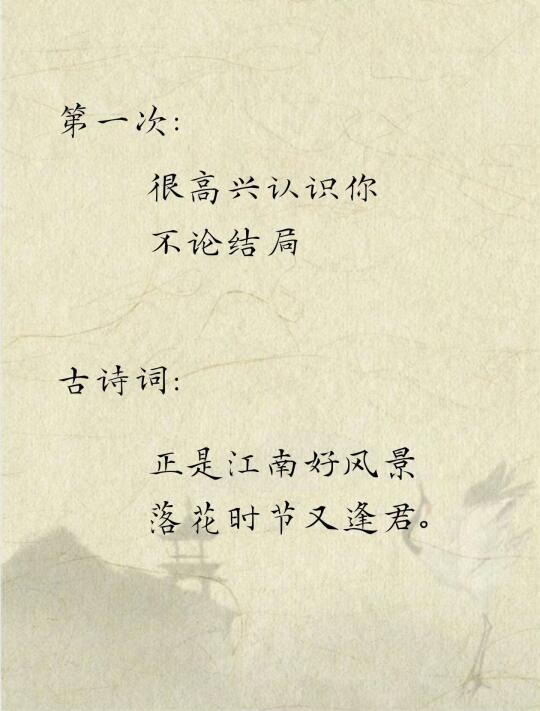 第一次：
很高兴认识你
不论结局
古诗词：
正是江南好风景
落花时节又逢君。